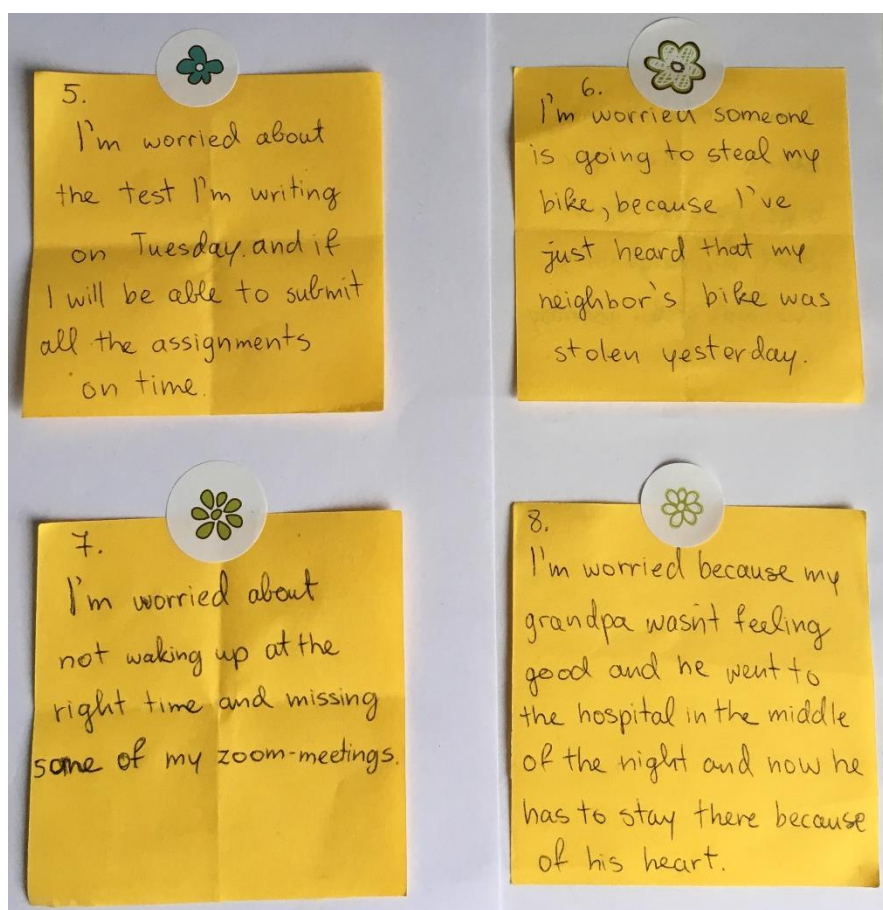 5.
I'm worried about
the test I'm writing
on Tuesday. and if
I will be able to submit
all the assignments
on time.
6.
I'm worried someone
is going to steal my
bike, because I've
just heard that my
neighbor's bike was
stolen yesterday.
7.
I'm worried about
not waking up at the
right time and missing
some of my zoom-meetings.
8.
I'm worried because my
grandpa wasn't feeling
good and he went to
the hospital in the middle
of the night and now he
has to stay there because
of his heart.